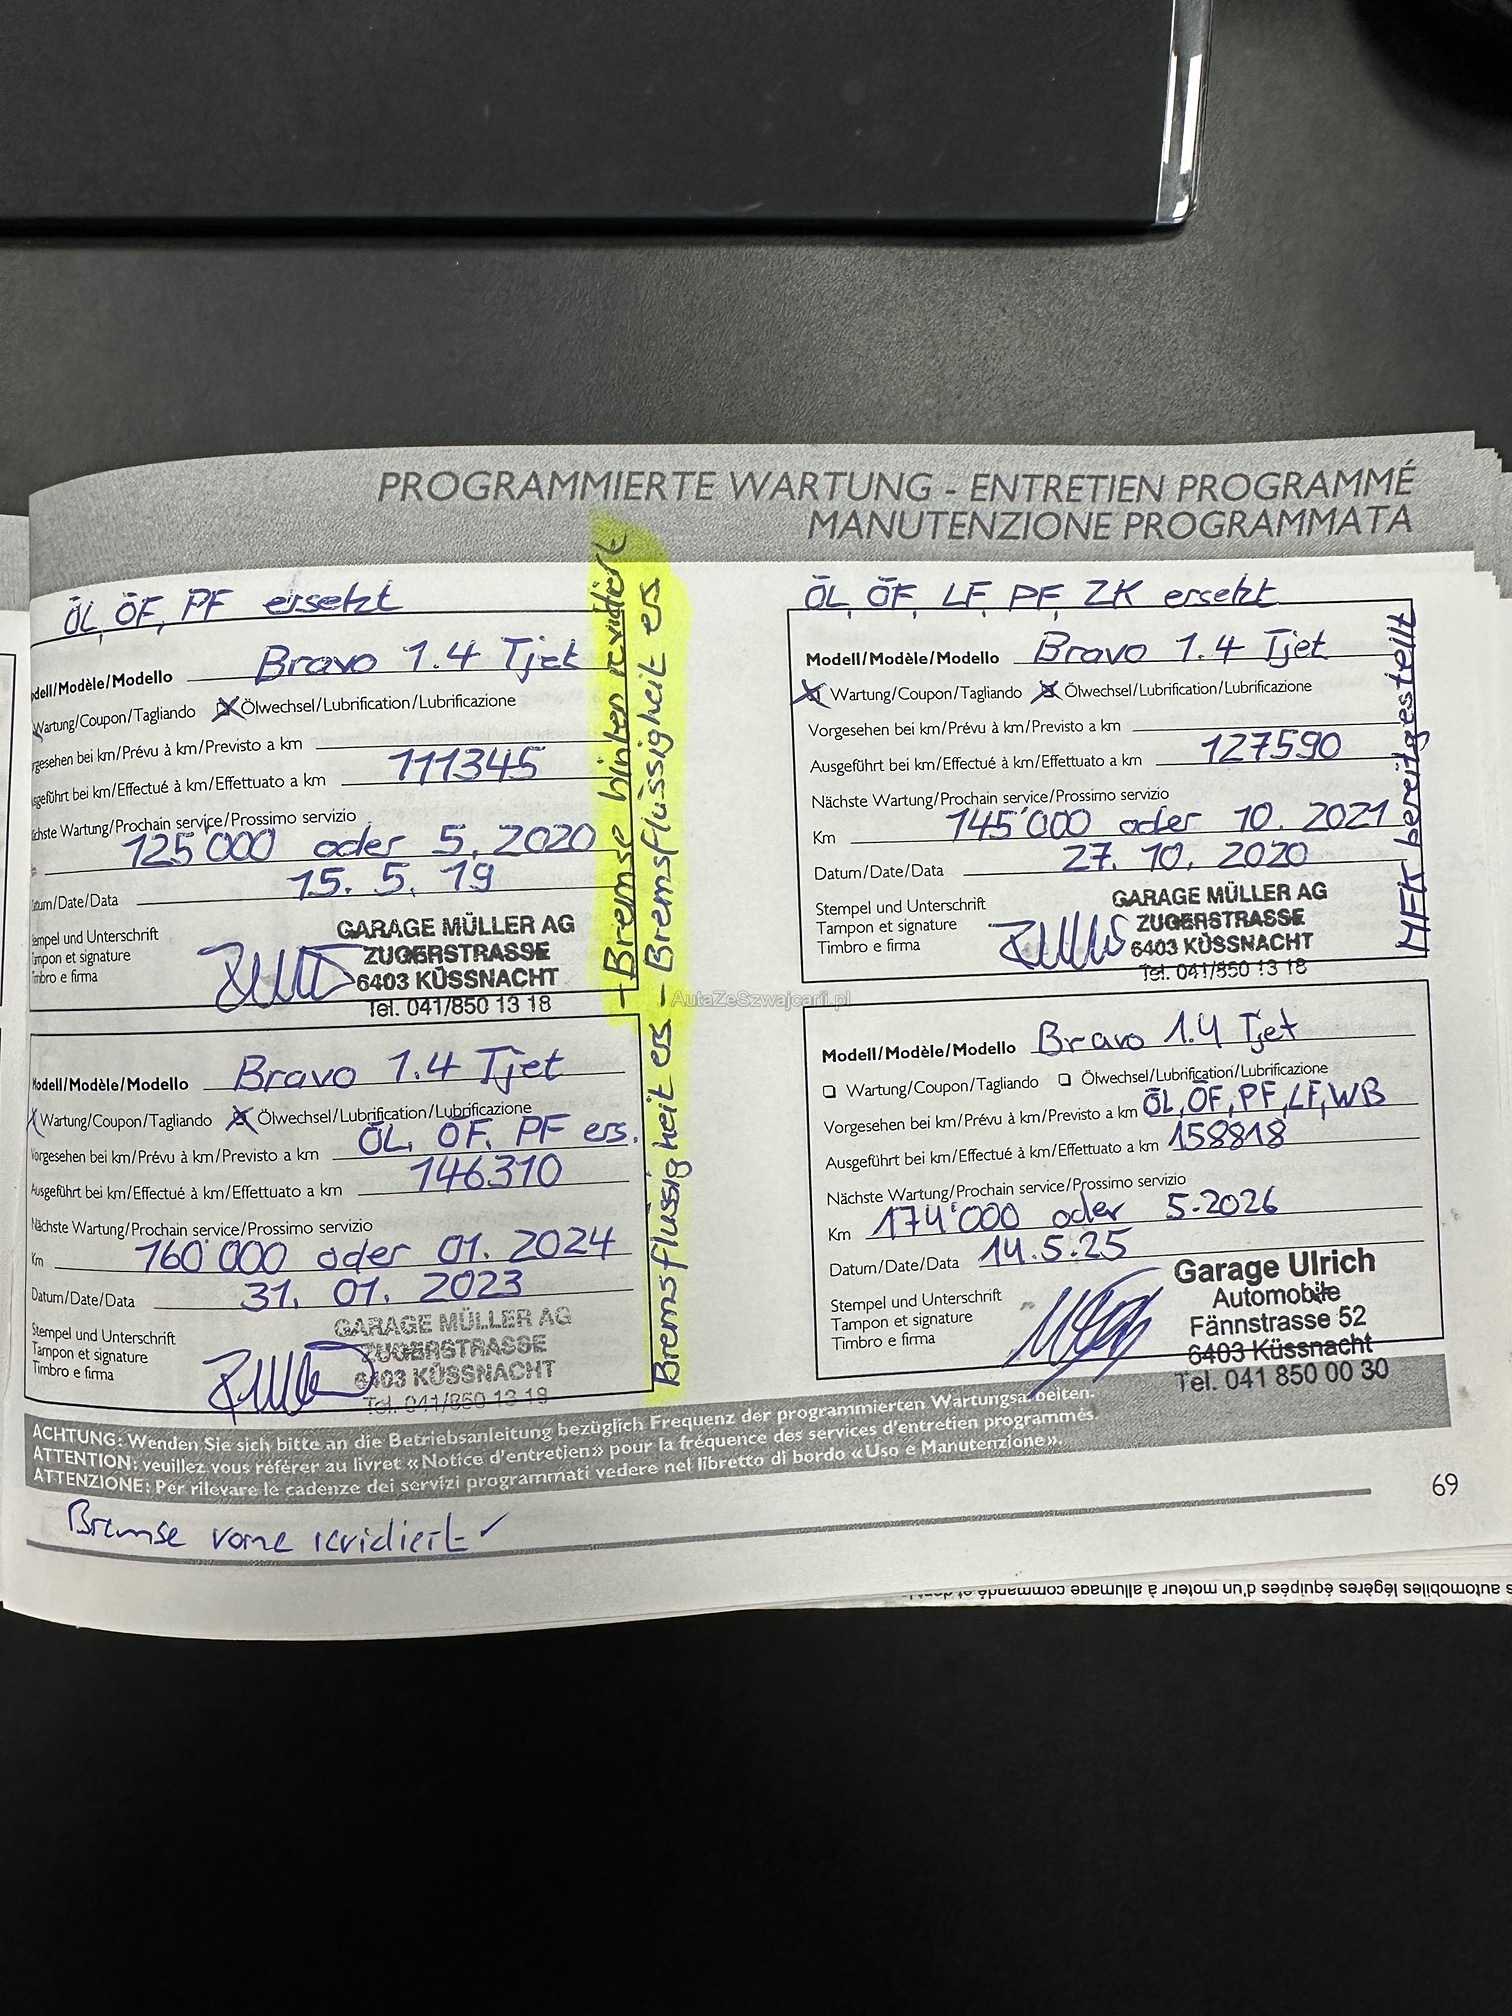 PROGRAMMIERTE WARTUNG - ENTRETIEN PROGRAMMÉ
MANUTENZIONE PROGRAMMATA
ÖL, ÖF, PF ersetzt
dell/Modèle/Modello Bravo 1.4 Tjet
Wartung/Coupon/Tagliando Ölwechsel/Lubrification/Lubrificazione
rgesehen bei km/Prévu à km/Previsto a km
sgeführt bei km/Effectué à km/Effettuato a km 111345
chste Wartung/Prochain service/Prossimo servizio
125'000 oder 5. 2020
tum/Date/Data 15. 5. 19
empel und Unterschrift
mpon et signature
mbro e firma
GARAGE MÜLLER AG
ZUGERSTRASSE
6403 KÜSSNACHT
Tel. 041/850 13 18
+Bremse hinten revidiert
- Bremsflüssigheit ers
odell/Modèle/Modello Bravo 1.4 Tjet
Wartung/Coupon/Tagliando Ölwechsel/Lubrification/Lubrificazione
Vorgesehen bei km/Prévu à km/Previsto a km ÖL, ÖF, PF ers.
Ausgeführt bei km/Effectué à km/Effettuato a km 146310
Nächste Wartung/Prochain service/Prossimo servizio
Km 160'000 oder 01. 2024
Datum/Date/Data 31. 01. 2023
Stempel und Unterschrift
Tampon et signature
Timbro e firma
GARAGE MÜLLER AG
ZUGERSTRASSE
6403 KÜSSNACHT
Tel. 041/850 13 18
Bremsflüssigheit ers
ÖL, ÖF, LF, PF, ZK ersetzt
Modell/Modèle/Modello Bravo 1.4 Tjet
Wartung/Coupon/Tagliando Ölwechsel/Lubrification/Lubrificazione
Vorgesehen bei km/Prévu à km/Previsto a km
Ausgeführt bei km/Effectué à km/Effettuato a km 127590
Nächste Wartung/Prochain service/Prossimo servizio
Km 145'000 oder 10. 2021
Datum/Date/Data 27. 10. 2020
Stempel und Unterschrift
Tampon et signature
Timbro e firma
GARAGE MÜLLER AG
ZUGERSTRASSE
6403 KÜSSNACHT
Tel. 041/850 13 18
MFK bereitgestellt
AutaZeSzwajcarii.pl
Modell/Modèle/Modello Bravo 1.4 Tjet
Wartung/Coupon/Tagliando Ölwechsel/Lubrification/Lubrificazione
Vorgesehen bei km/Prévu à km/Previsto a km ÖL, ÖF, PF, LF, WB
Ausgeführt bei km/Effectué à km/Effettuato a km 158818
Nächste Wartung/Prochain service/Prossimo servizio
Km 174'000 oder 5.2026
Datum/Date/Data 14.5.25
Stempel und Unterschrift
Tampon et signature
Timbro e firma
Garage Ulrich
Automobile
Fännstrasse 52
6403 Küssnacht
Tel. 041 850 00 30
ACHTUNG: Wenden Sie sich bitte an die Betriebsanleitung bezüglich Frequenz der programmierten Wartungsarbeiten.
ATTENTION: veuillez vous référer au livret «Notice d'entretien» pour la fréquence des services d'entretien programmés.
ATTENZIONE: Per rilevare le cadenze dei servizi programmati vedere nel libretto di bordo «Uso e Manutenzione».
69
Bremse vorne revidiert ✓
s automobiles légères équipées d'un moteur à allumage commandé et